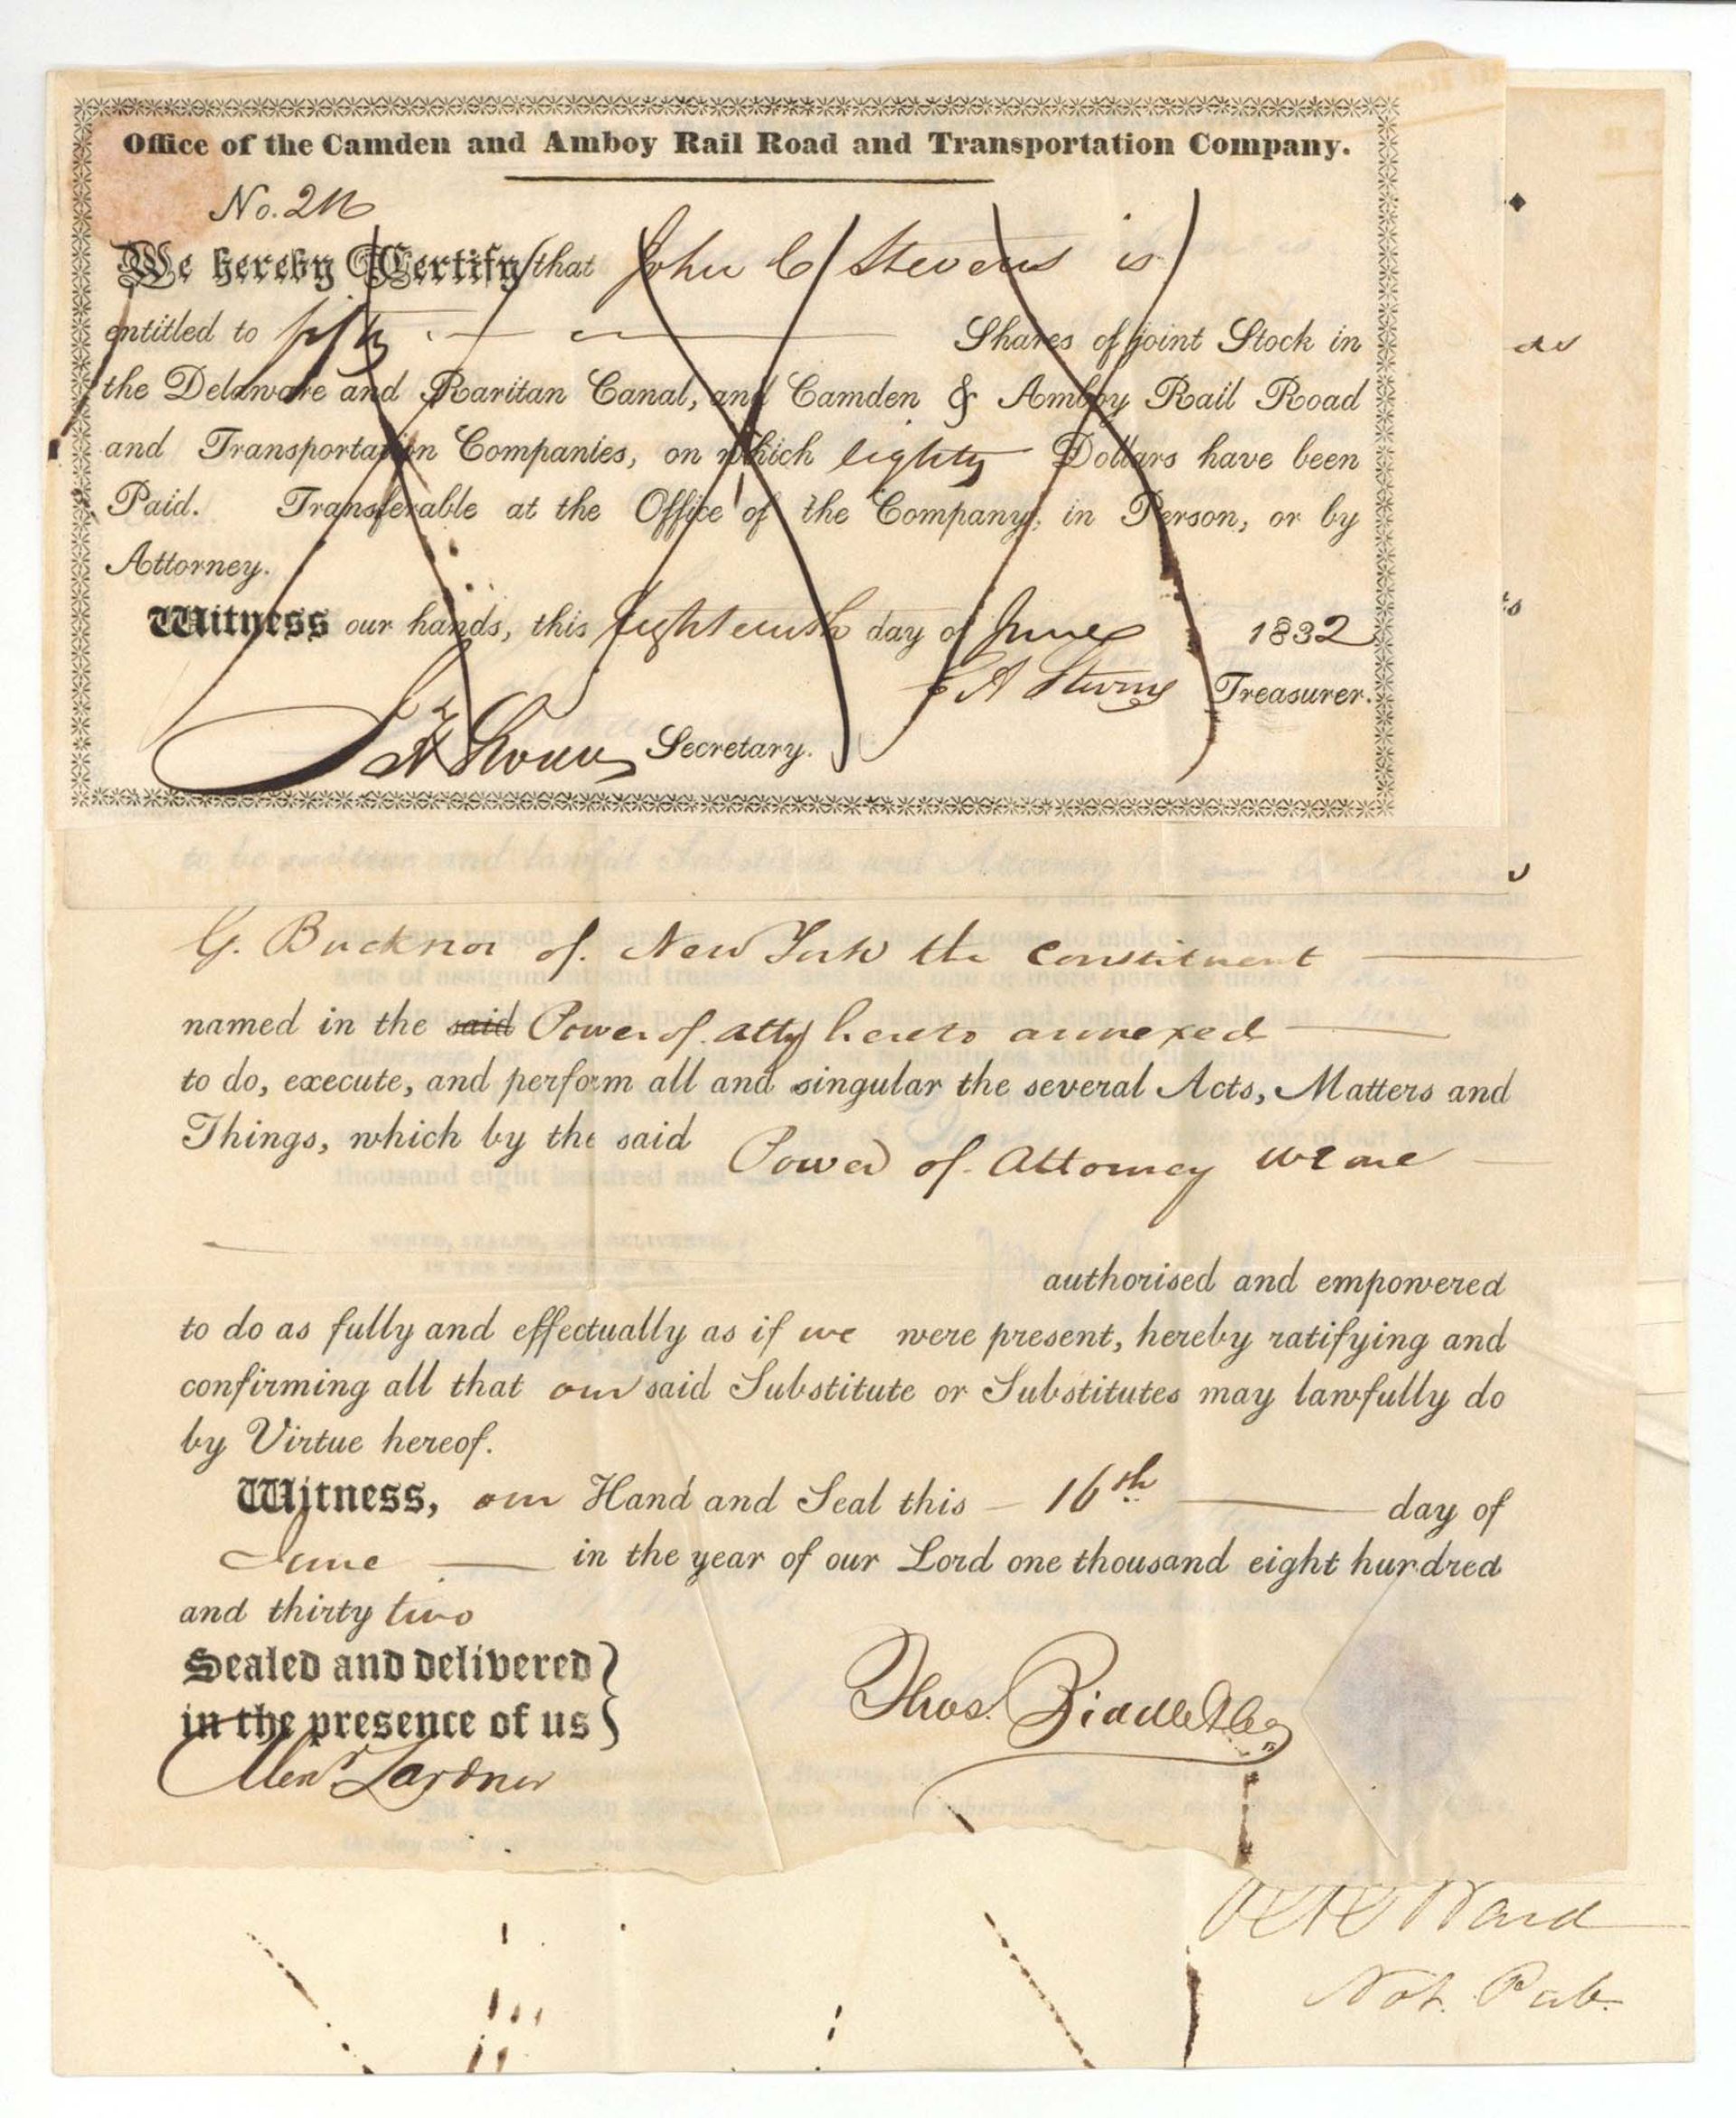 Office of the Camden and Amboy Rail Road and Transportation Company.
We hereby Certify that John C Stevens is
entitled to fifty Shares of joint Stock in
the Delaware and Raritan Canal, and Camden & Amboy Rail Road
and Transportation Companies, on which eighty Dollars have been
Paid. Transferable at the Office of the Company, in Person, or by
Attorney.
Witness our hands, this Eighteenth day of June 1832
E A Stevens Treasurer.
Secretary.
to be our true and lawful Substitute and Attorney
G. Bucknor of New York the Constituent
named in the said Power of atty hereto annexed
to do, execute, and perform all and singular the several Acts, Matters and
Things, which by the said Power of Attorney we are
authorised and empowered
to do as fully and effectually as if we were present, hereby ratifying and
confirming all that our said Substitute or Substitutes may lawfully do
by Virtue hereof.
Witness, our Hand and Seal this 16th day of
June in the year of our Lord one thousand eight hundred
and thirty two
Sealed and delivered
in the presence of us
Thos. Biddle & Co
Alexr Lardner
Ward
Not. Pub.